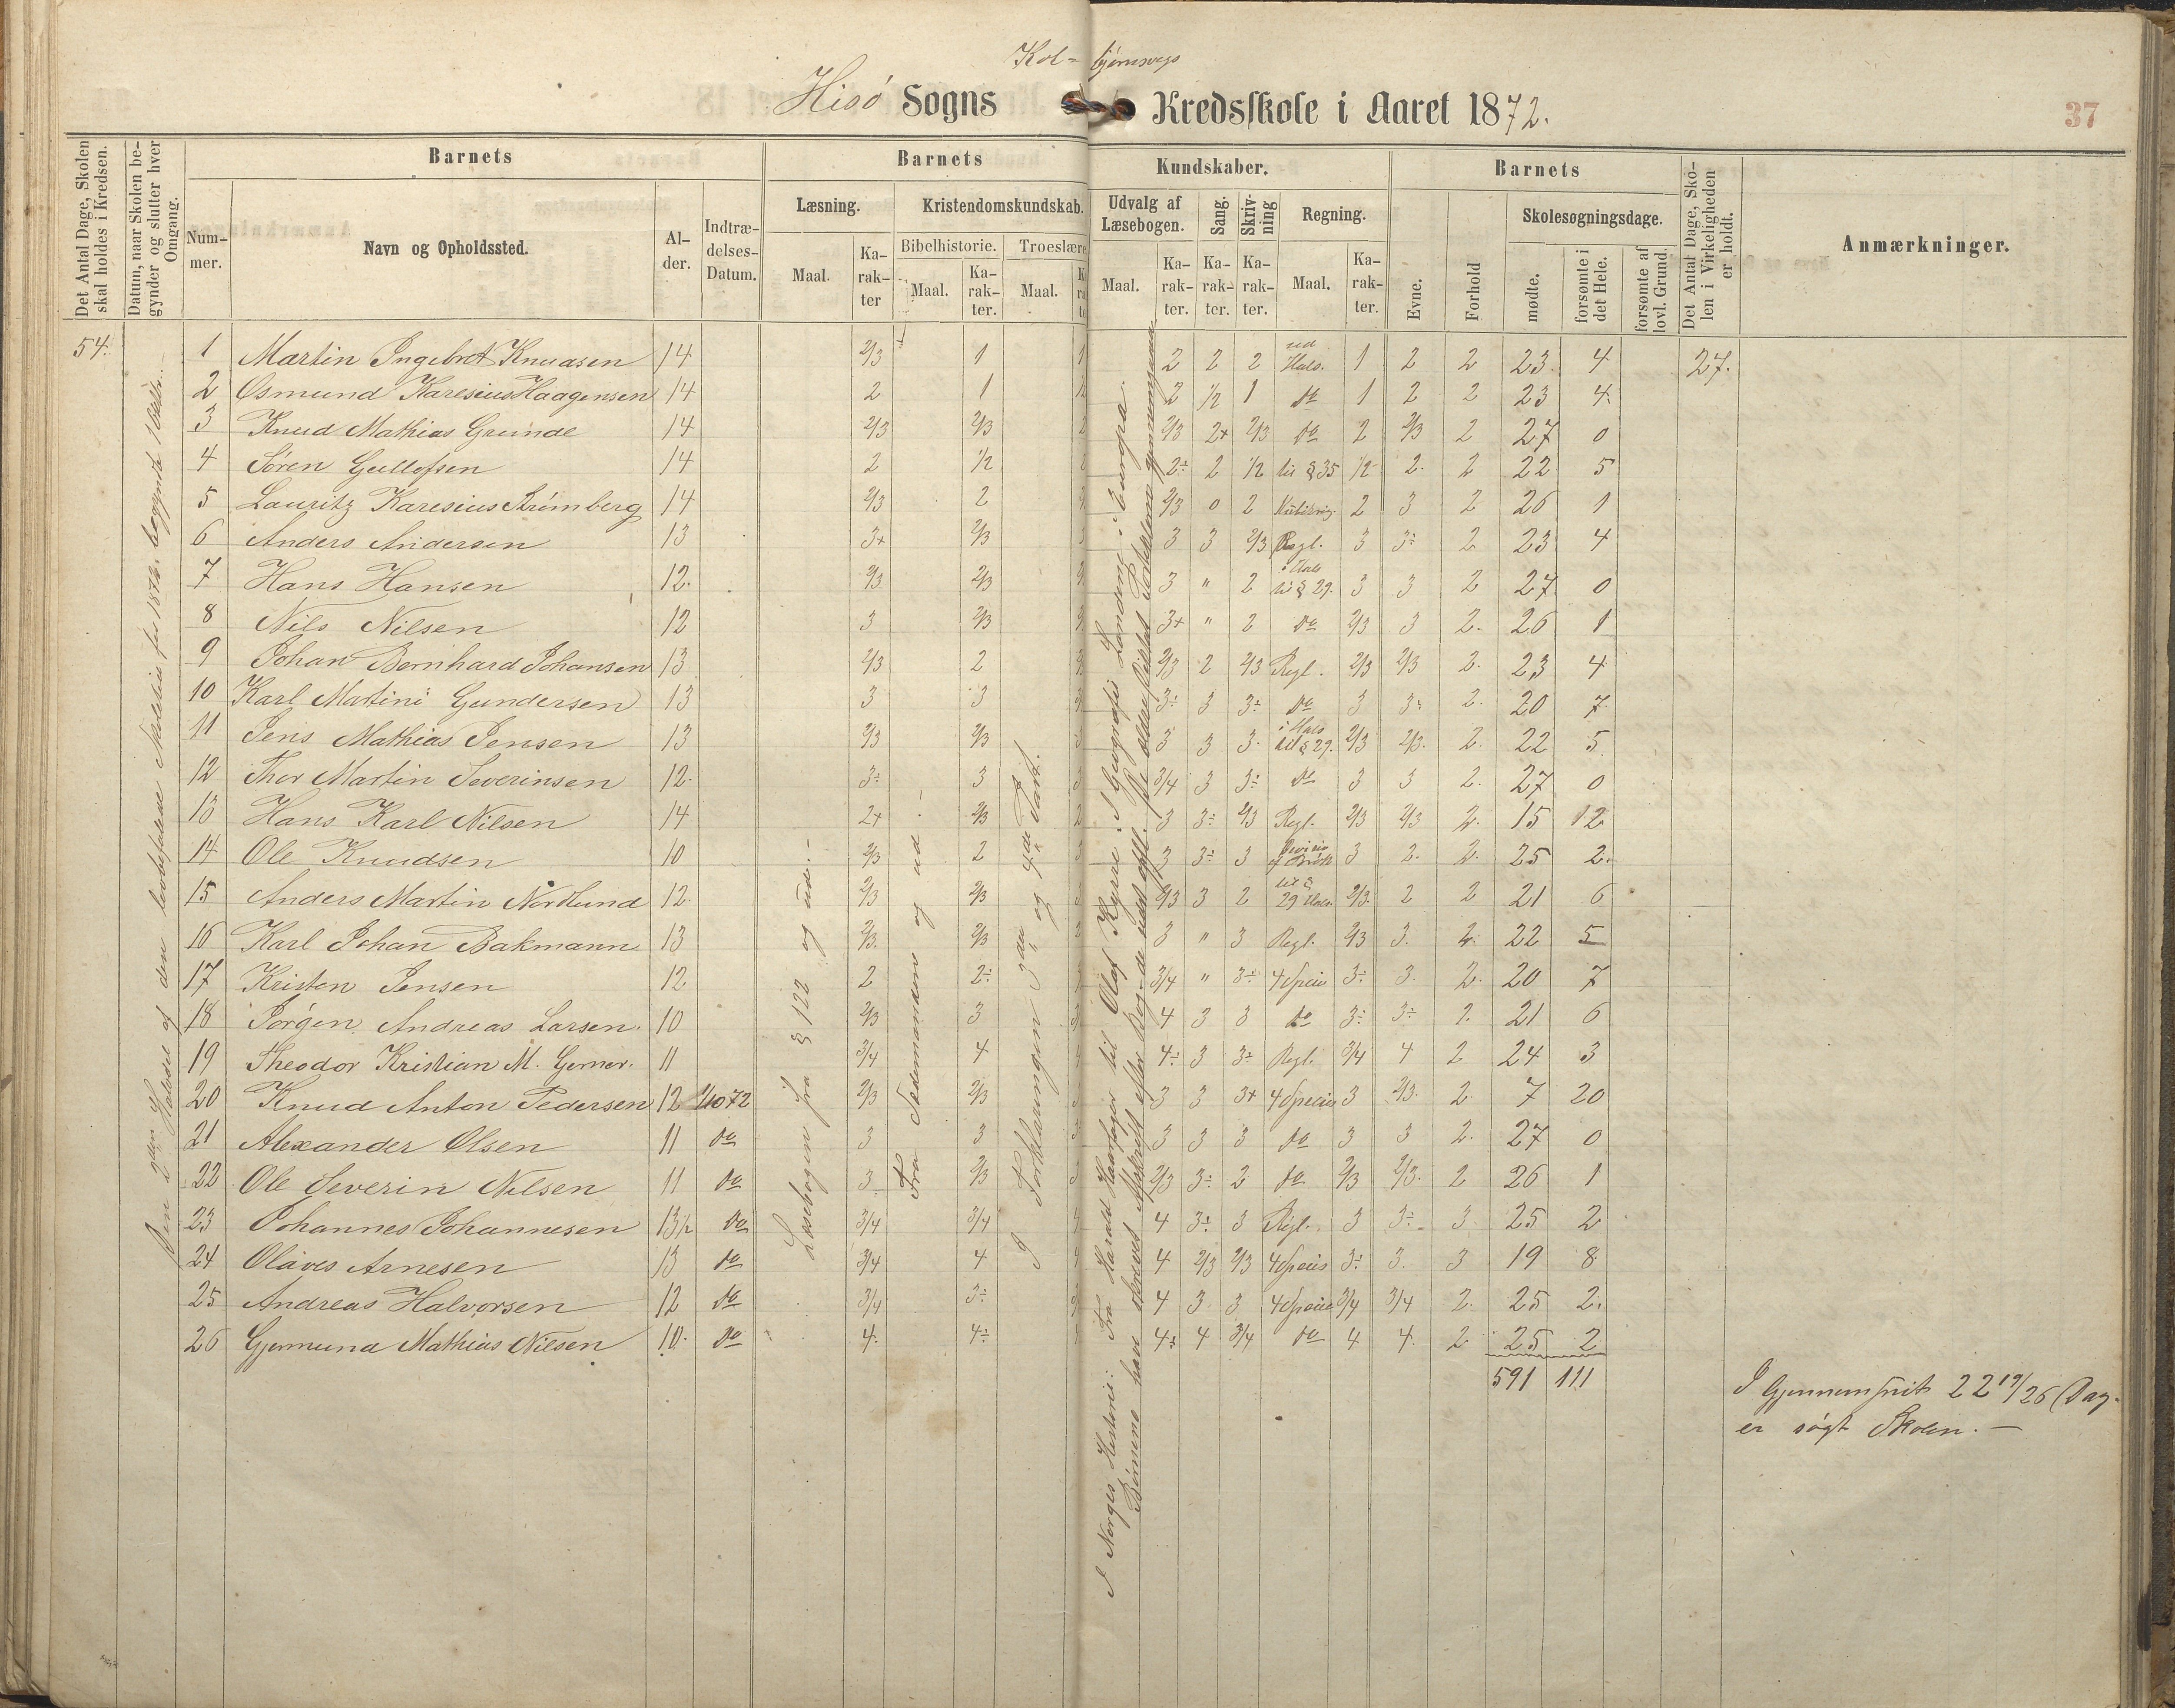 Kol-bjørnsvigs
Hisø Sogns Kredsskole i Aaret 1872.
37
Det Antal Dage, Skolen skal holdes i Kredsen.
Datum, naar Skolen begynder og slutter hver Omgang.
Barnets
Barnets
Kundskaber.
Barnets
Det Antal Dage, Skolen i Virkeligheden er holdt.
Anmærkninger.
Nummer.
Navn og Opholdssted.
Alder.
Indtrædelses-Datum.
Læsning.
Kristendomskundskab.
Udvalg af Læsebogen.
Sang.
Skrivning
Regning.
Evne.
Forhold
Skolesøgningsdage.
Bibelhistorie.
Troeslære
Maal.
Karakter
Maal.
Karakter.
Maal.
Maal.
Karakter.
Karakter.
Karakter.
Maal.
Karakter.
mødte.
forsømte i det Hele.
forsømte af lovl. Grund.
54.
Den 2den Halvdel af den lovbefalede Skoletid for 1872, begyndte 1 Oktbr.
Læsebogen fra § 122 og ud.
Fra Sedmændene og ud.
I Forklaringen 3die og 4de Part.
I Norges Historie: Fra Harald Haarfager til Olaf Kyrre. I Geografi: Landene i Europa.
1 Martin Ingebret Knudsen 14 2/3 1 1 2 2 2 ud Hals. 1 2 2 23 4 27.
2 Osmund Karesius Haagensen 14 2 1 2 1/2 1 do 1 2 2 23 4
3 Knud Mathias Grunde 14 2/3 2/3 2/3 2+ 2/3 do 2 2/3 2 27 0
4 Søren Gullofsen 14 2 1/2 2÷ 2 1/2 til § 35 1/2 2 2 22 5
5 Lauritz Karesius Strømberg 14 2/3 2 2/3 0 2 2 3 2 26 1
6 Anders Andersen 13 3+ 2/3 3 3 2/3 Regl. 3 3÷ 2 23 4
7 Hans Hansen 12 2/3 2/3 3 " 2 til § 29. 3 3 2 27 0
8 Nils Nilsen 12 3 2/3 3+ " 2 do 2/3 3 2 26 1
9 Johan Bernhard Johansen 13 2/3 2 2/3 2 2/3 Regl. 2/3 2/3 2 23 4
10 Karl Martini Gundersen 13 3 3 3÷ 3 3÷ do 3 3÷ 2 20 7
11 Jens Mathias Jensen 13 2/3 2/3 3 3 3 til § 29. 2/3 2/3 2 22 5
12 Thor Martin Severinsen 12 3÷ 3 3/4 3 3÷ do 3 3 2 27 0
13 Hans Karl Nilsen 14 2+ 2/3 3 3÷ 2/3 Regl. 2/3 2/3 2 15 12
14 Ole Knudsen 10 2/3 2 3 3÷ 3 3 2 2 25 2
15 Anders Martin Nordlund 12 2/3 2/3 2/3 3 2 til § 29 2/3 2 2 21 6
16 Karl Johan Bakmann 13 2/3 2/3 3 " 3 Regl. 2/3 3 2 22 5
17 Kristen Jensen 12 2 2÷ 3/4 " 3÷ 4 Specis 3÷ 3 2 20 7
18 Jørgen Andreas Larsen 10 2/3 3 4 3 3 do 3÷ 3÷ 2 21 6
19 Theodor Kristian M. Gerner. 11 3/4 4 4÷ 3 3÷ Regl. 3/4 4 2 24 3
20 Knud Anton Pedersen 12 1/10 72 2/3 2/3 3 3 3+ 4 Specis 3 2/3 2 7 20
21 Alexander Olsen 11 do 3 3 3 3 3 do 3 3 2 27 0
22 Ole Severin Nilsen 11 do 3 2/3 2/3 3÷ 2 do 2/3 2/3 2 26 1
23 Johannes Johannesen 13½ do 3/4 3/4 4 3÷ 3 Regl. 3 3÷ 3 25 2
24 Olaves Arnesen 13 do 3/4 4 4 2/3 2/3 4 Specis 3÷ 3 3 19 8
25 Andreas Halvorsen 12 do 3/4 3÷ 4 3 3 4 Specis 3/4 3/4 2 25 2
26 Gjermund Mathias Nilsen 10 do 4 4÷ 4÷ 4 3/4 do 4 4 2 25 2
591 111
I Gjennemsnit 22 19/26 Dag.
er søgt Skolen.